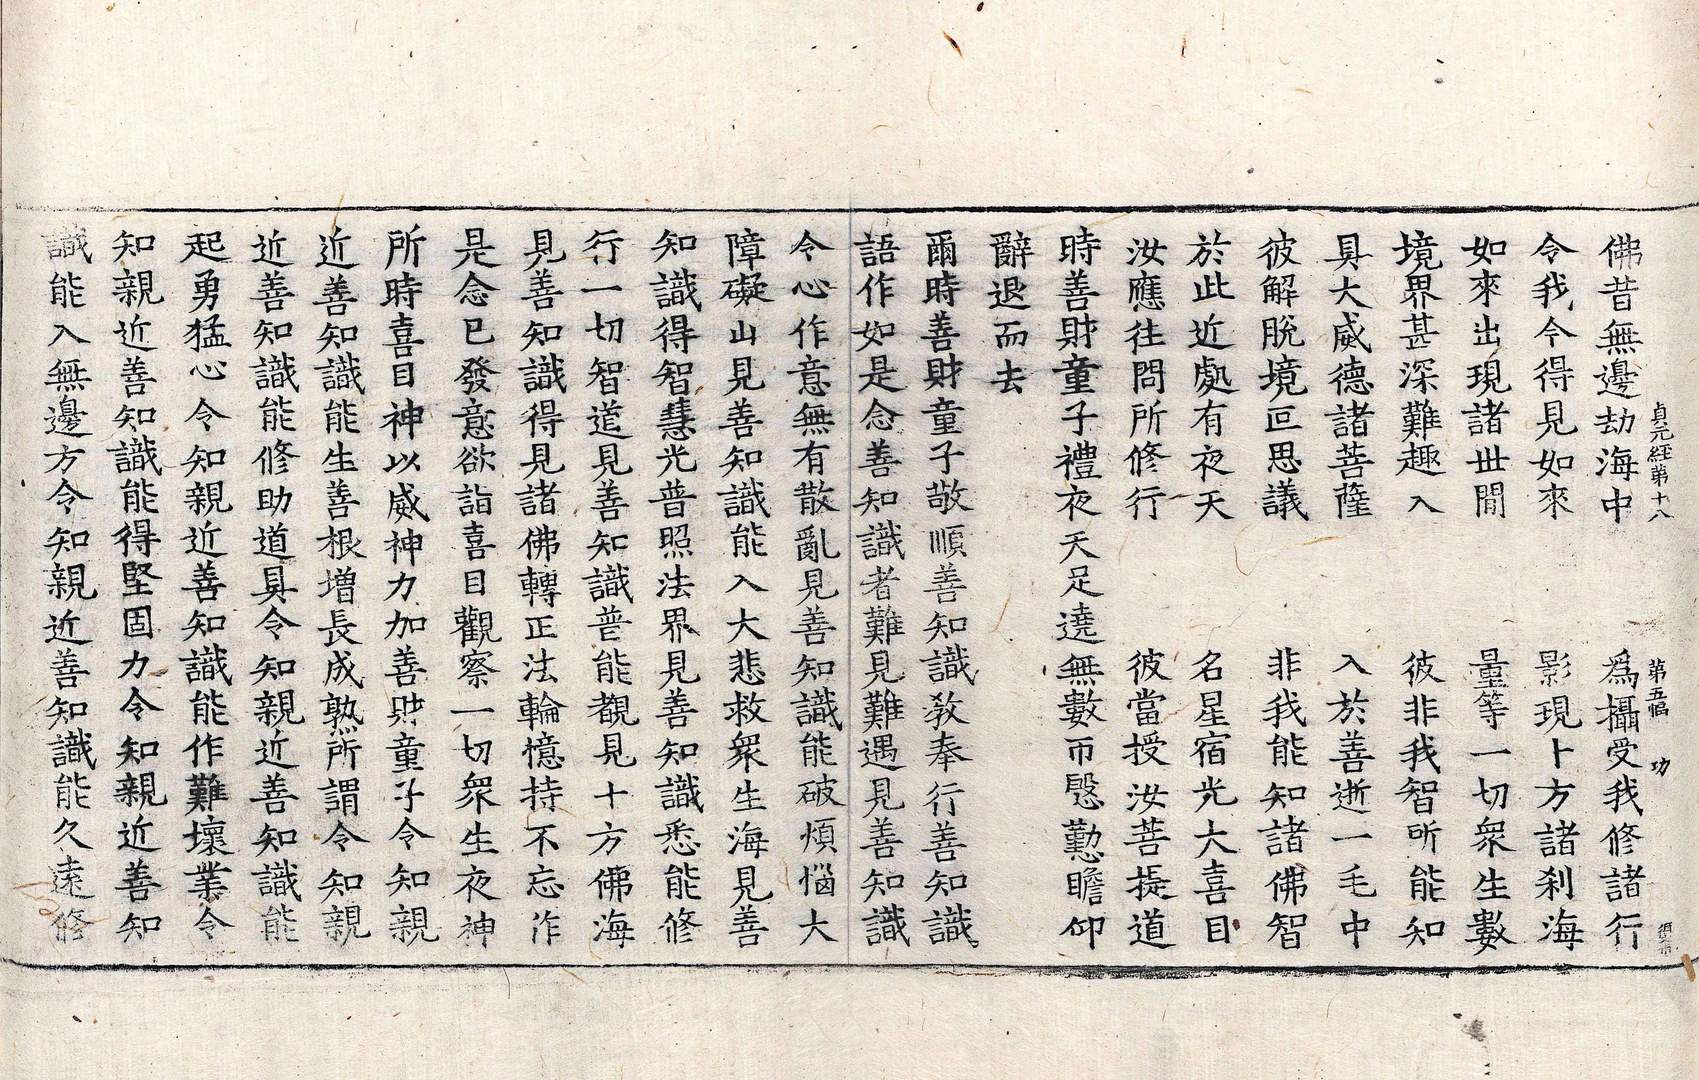 貞元經第十八 第五幅 功
佛昔無邊劫海中 爲攝受我修諸行
令我今得見如來 影現十方諸刹海
如來出現諸世閒 量等一切衆生數
境界甚深難趣入 彼非我智所能知
具大威德諸菩薩 入於善逝一毛中
彼解脫境叵思議 非我能知諸佛智
於此近處有夜天 名星宿光大喜目
汝應往問所修行 彼當授汝菩提道
時善財童子禮夜天足遶無數帀慇懃瞻仰
辭退而去
爾時善財童子敬順善知識教奉行善知識
語作如是念善知識者難見難遇見善知識
令心作意無有散亂見善知識能破煩惱大
障礙山見善知識能入大悲救衆生海見善
知識得智慧光普照法界見善知識悉能修
行一切智道見善知識普能覩見十方佛海
見善知識得見諸佛轉正法輪憶持不忘作
是念已發意欲詣喜目觀察一切衆生夜神
所時喜目神以威神力加善財童子令知親
近善知識能生善根增長成熟所謂令知親
近善知識能修助道具令知親近善知識能
起勇猛心令知親近善知識能作難壞業令
知親近善知識能得堅固力令知親近善知
識能入無邊方令知親近善知識能久遠修